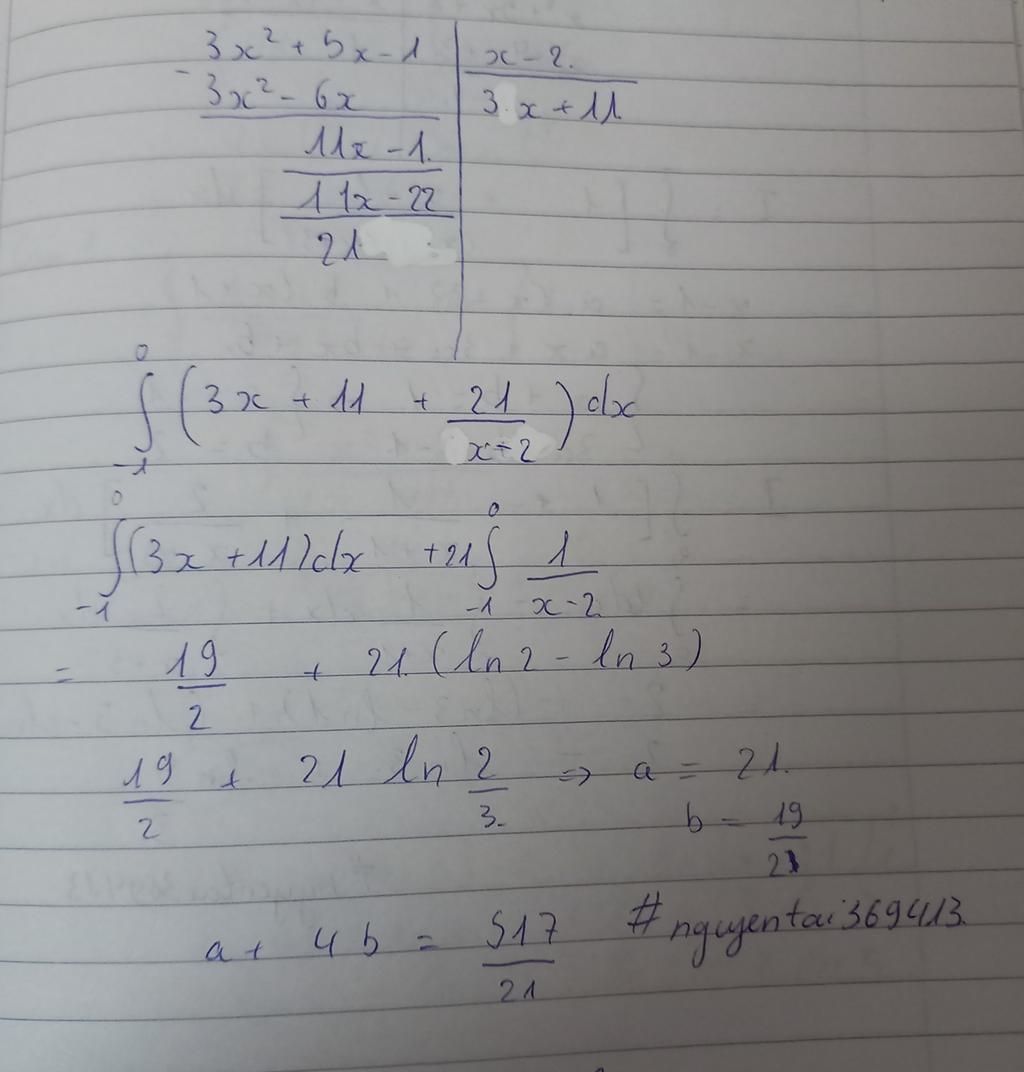 3x² + 5x - 1 | x - 2.
- 3x² - 6x | 3x + 11
11x - 1.
11x - 22
21
∫_{-1}^{0} (3x + 11 + \frac{21}{x-2}) dx
∫_{-1}^{0} (3x + 11) dx + 21 ∫_{-1}^{0} \frac{1}{x-2}
= \frac{19}{2} + 21. (ln 2 - ln 3)
\frac{19}{2} + 21 ln \frac{2}{3} => a = 21.
b = \frac{19}{21}
a + 4b = \frac{517}{21} #nguyentai369413.